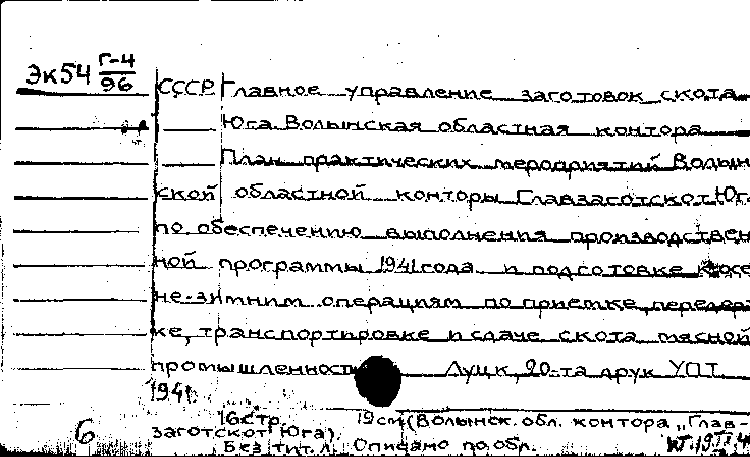 Эк54 Г-4
96
СССР Главное управление заготовок скота
Юга. Волынская областная контора
План практических мероприятий Волын
ской областной конторы ГлавзаготскотЮга
по обеспечению выполнения производствен
ной программы 1941 года и подготовке к осе
не-зимним операциям по приемке, передерж
ке, транспортировке и сдаче скота мясной
промышленности Луцк, 20-та друк УПТ
1941.
16 стр. 19 см (Волынск. обл. контора „Глав-
заготскот Юга).
Без тит. л. Описано по обл.
6